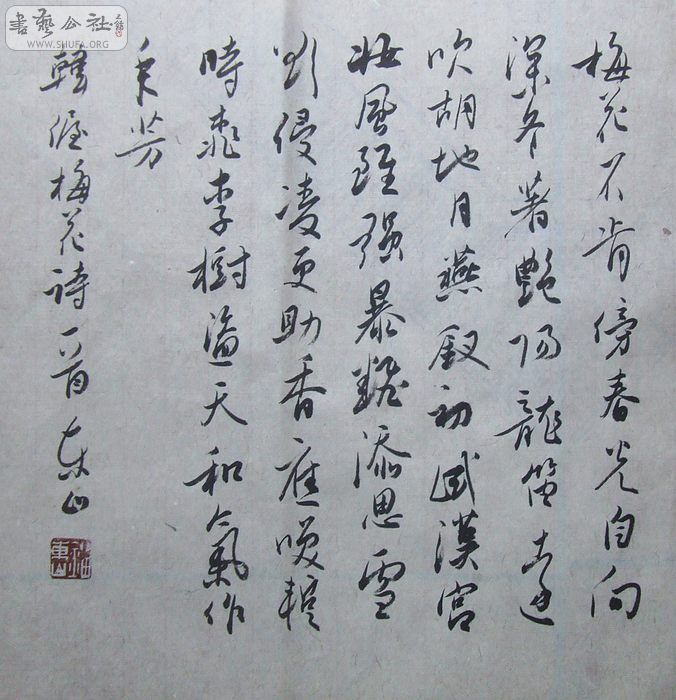 書藝公社
WWW.SHUFA.ORG
梅花不肯傍春光自向
深冬著艷陽龍笛遠
吹胡地月燕釵初試漢宮
妝風雖强暴翻添思雪
欲侵凌更助香應咲暫
時桃李樹盜天和氣作
年芳
韓偓梅花詩一首 東山